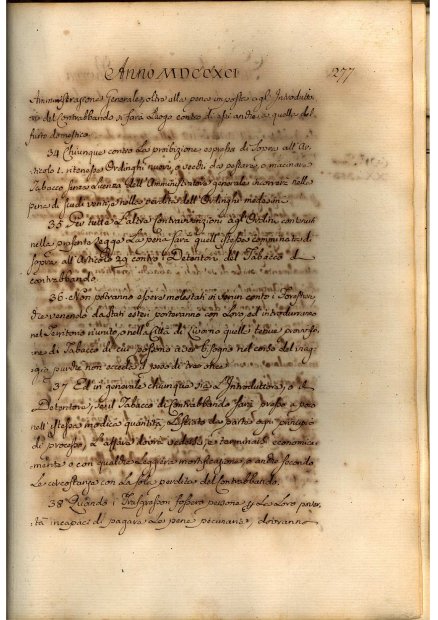 Anno MDCCXCI
277
Amministrazione Generale, oltre alla pena imposta agl' Introdutto-
ri del Contrabbando si farà luogo contro di essi anche a quella del
furto domestico.
34 Chiunque contro la proibizione espressa di sopra all' Ar-
ticolo 1. ritenesse Ordinghi nuovi, o vecchi da pestare, o macinare
Tabacco senza licenza dell' Amministratore generale incorrerà nella
pena di scudi venti, e nella perdita dell' Ordinghi medesimi
35 Per tutte l' altre contravvenzioni agl' Ordini contenuti
nella presente Legge la pena sarà quell' istessa comminata di
sopra all' Articolo 29 contro i Detentori del Tabacco di
contrabbando.
36. Non potranno essere molestati in verun conto i Forestieri,
che venendo da Stati esteri porteranno con loro, ed introdurranno
nel Territorio riunito, o nella Città di Livorno quella tenue porzio-
ne di Tabacco di cui possono aver bisogno nel corso del viag-
gio purchè non ecceda il peso di tre once
37 Ed in generale chiunque sia l' Introduttore, o il
Detentore, se il Tabacco di Contrabbando sarà preso a peso
nell' istessa modica quantità, lasciato da parte ogni principio
di processo, l' affare dovrà vedersi, e terminarsi economica-
mente o con qualche leggiera mortificazione, o anche secondo
le circostanze con la sola perdita del Contrabbando.
38 Quando i Trasgressori fossero persone per la loro pover-
tà incapaci di pagare le pene pecuniarie, dovranno